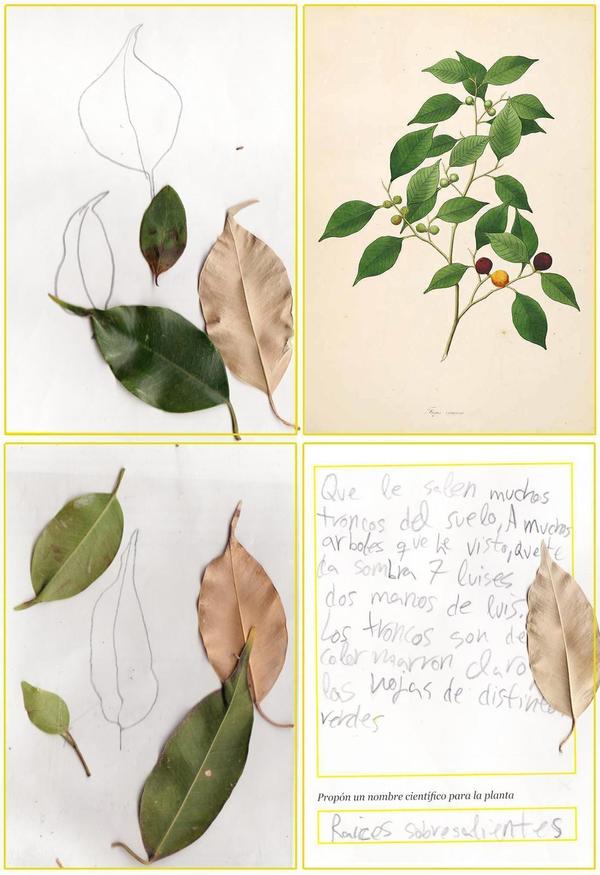 Que le salen muchos
troncos del suelo, A muchos
arboles que he visto, que te
da sombra 7 luises
dos manos de luis.
Los troncos son de
color marron claro
las hojas de distintos
verdes
Propón un nombre científico para la planta
Raices sobresalientes